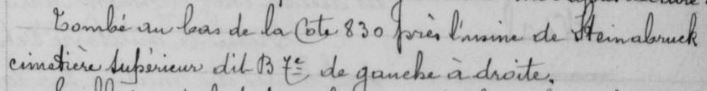 Tombé au bas de la Cote 830 près l'usine de Steinabruck
cimetière supérieur dit B 7e de gauche à droite.